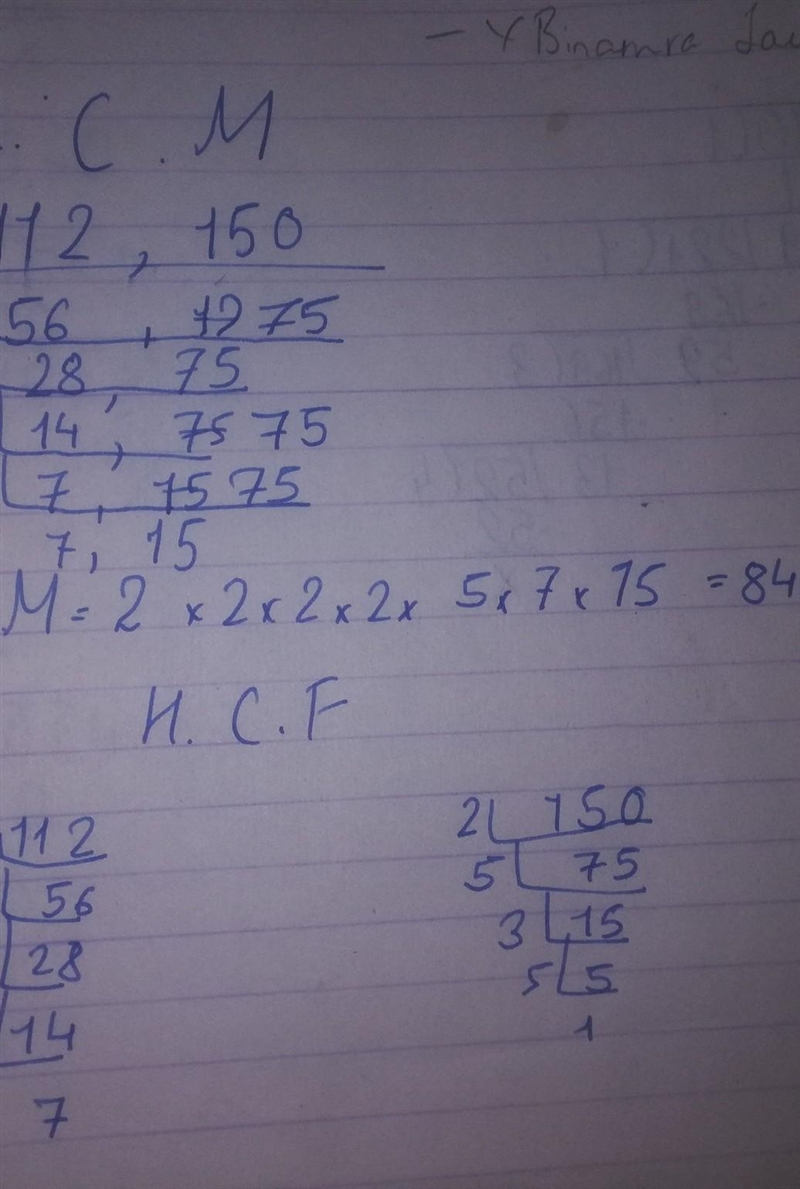 — Y Binamra
C . M
112 , 150
56 , 75
28 , 75
14 , 75 75
7 , 15 75
7, 15
M = 2 × 2 × 2 × 2 × 5 × 7 × 15 = 84
H. C. F
112
56
28
14
7
2 150
5 75
3 15
5 5
1